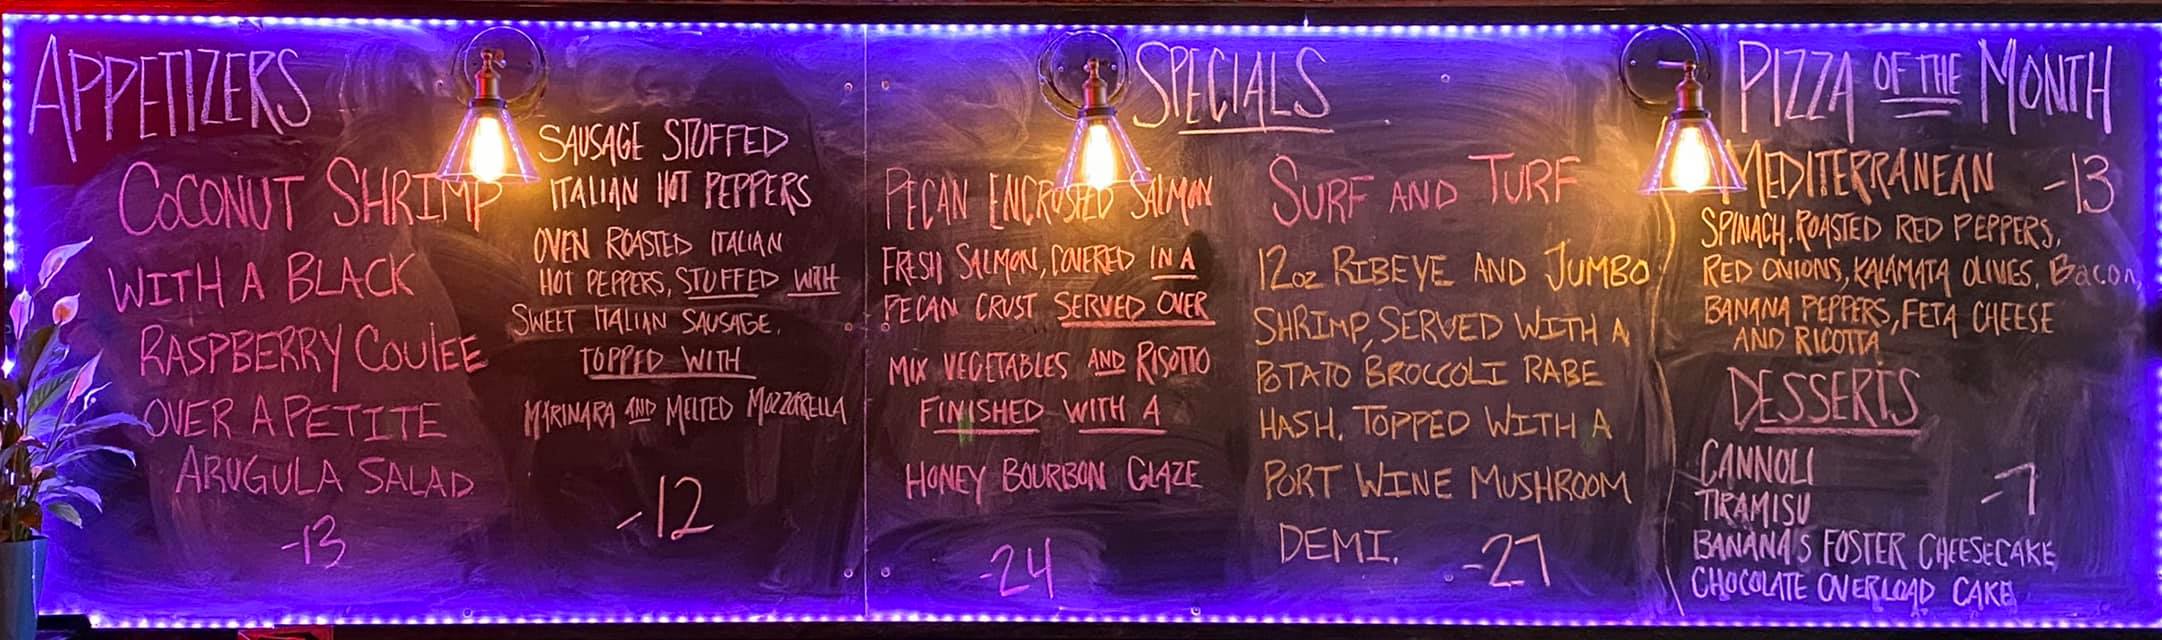 APPETIZERS
COCONUT SHRIMP
WITH A BLACK
RASPBERRY COULEE
OVER A PETITE
ARUGULA SALAD
-13
SAUSAGE STUFFED
ITALIAN HOT PEPPERS
OVEN ROASTED ITALIAN
HOT PEPPERS, STUFFED WITH
SWEET ITALIAN SAUSAGE,
TOPPED WITH
MARINARA AND MELTED MOZZARELLA
-12
SPECIALS
PECAN ENCRUSTED SALMON
FRESH SALMON, COVERED IN A
PECAN CRUST SERVED OVER
MIX VEGETABLES AND RISOTTO
FINISHED WITH A
HONEY BOURBON GLAZE
-24
SURF AND TURF
12oz RIBEYE AND JUMBO
SHRIMP, SERVED WITH A
POTATO BROCCOLI RABE
HASH. TOPPED WITH A
PORT WINE MUSHROOM
DEMI. -27
PIZZA OF THE MONTH
MEDITERRANEAN -13
SPINACH, ROASTED RED PEPPERS,
RED ONIONS, KALAMATA OLIVES, Bacon,
BANANA PEPPERS, FETA CHEESE
AND RICOTTA
DESSERTS
CANNOLI
TIRAMISU -7
BANANA'S FOSTER CHEESECAKE
CHOCOLATE OVERLOAD CAKE